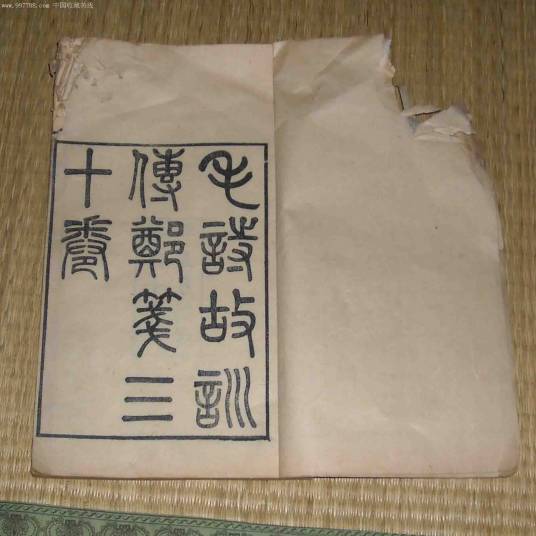 www.997788.com 中国收藏热线
毛詩故訓
傳鄭箋三
十卷